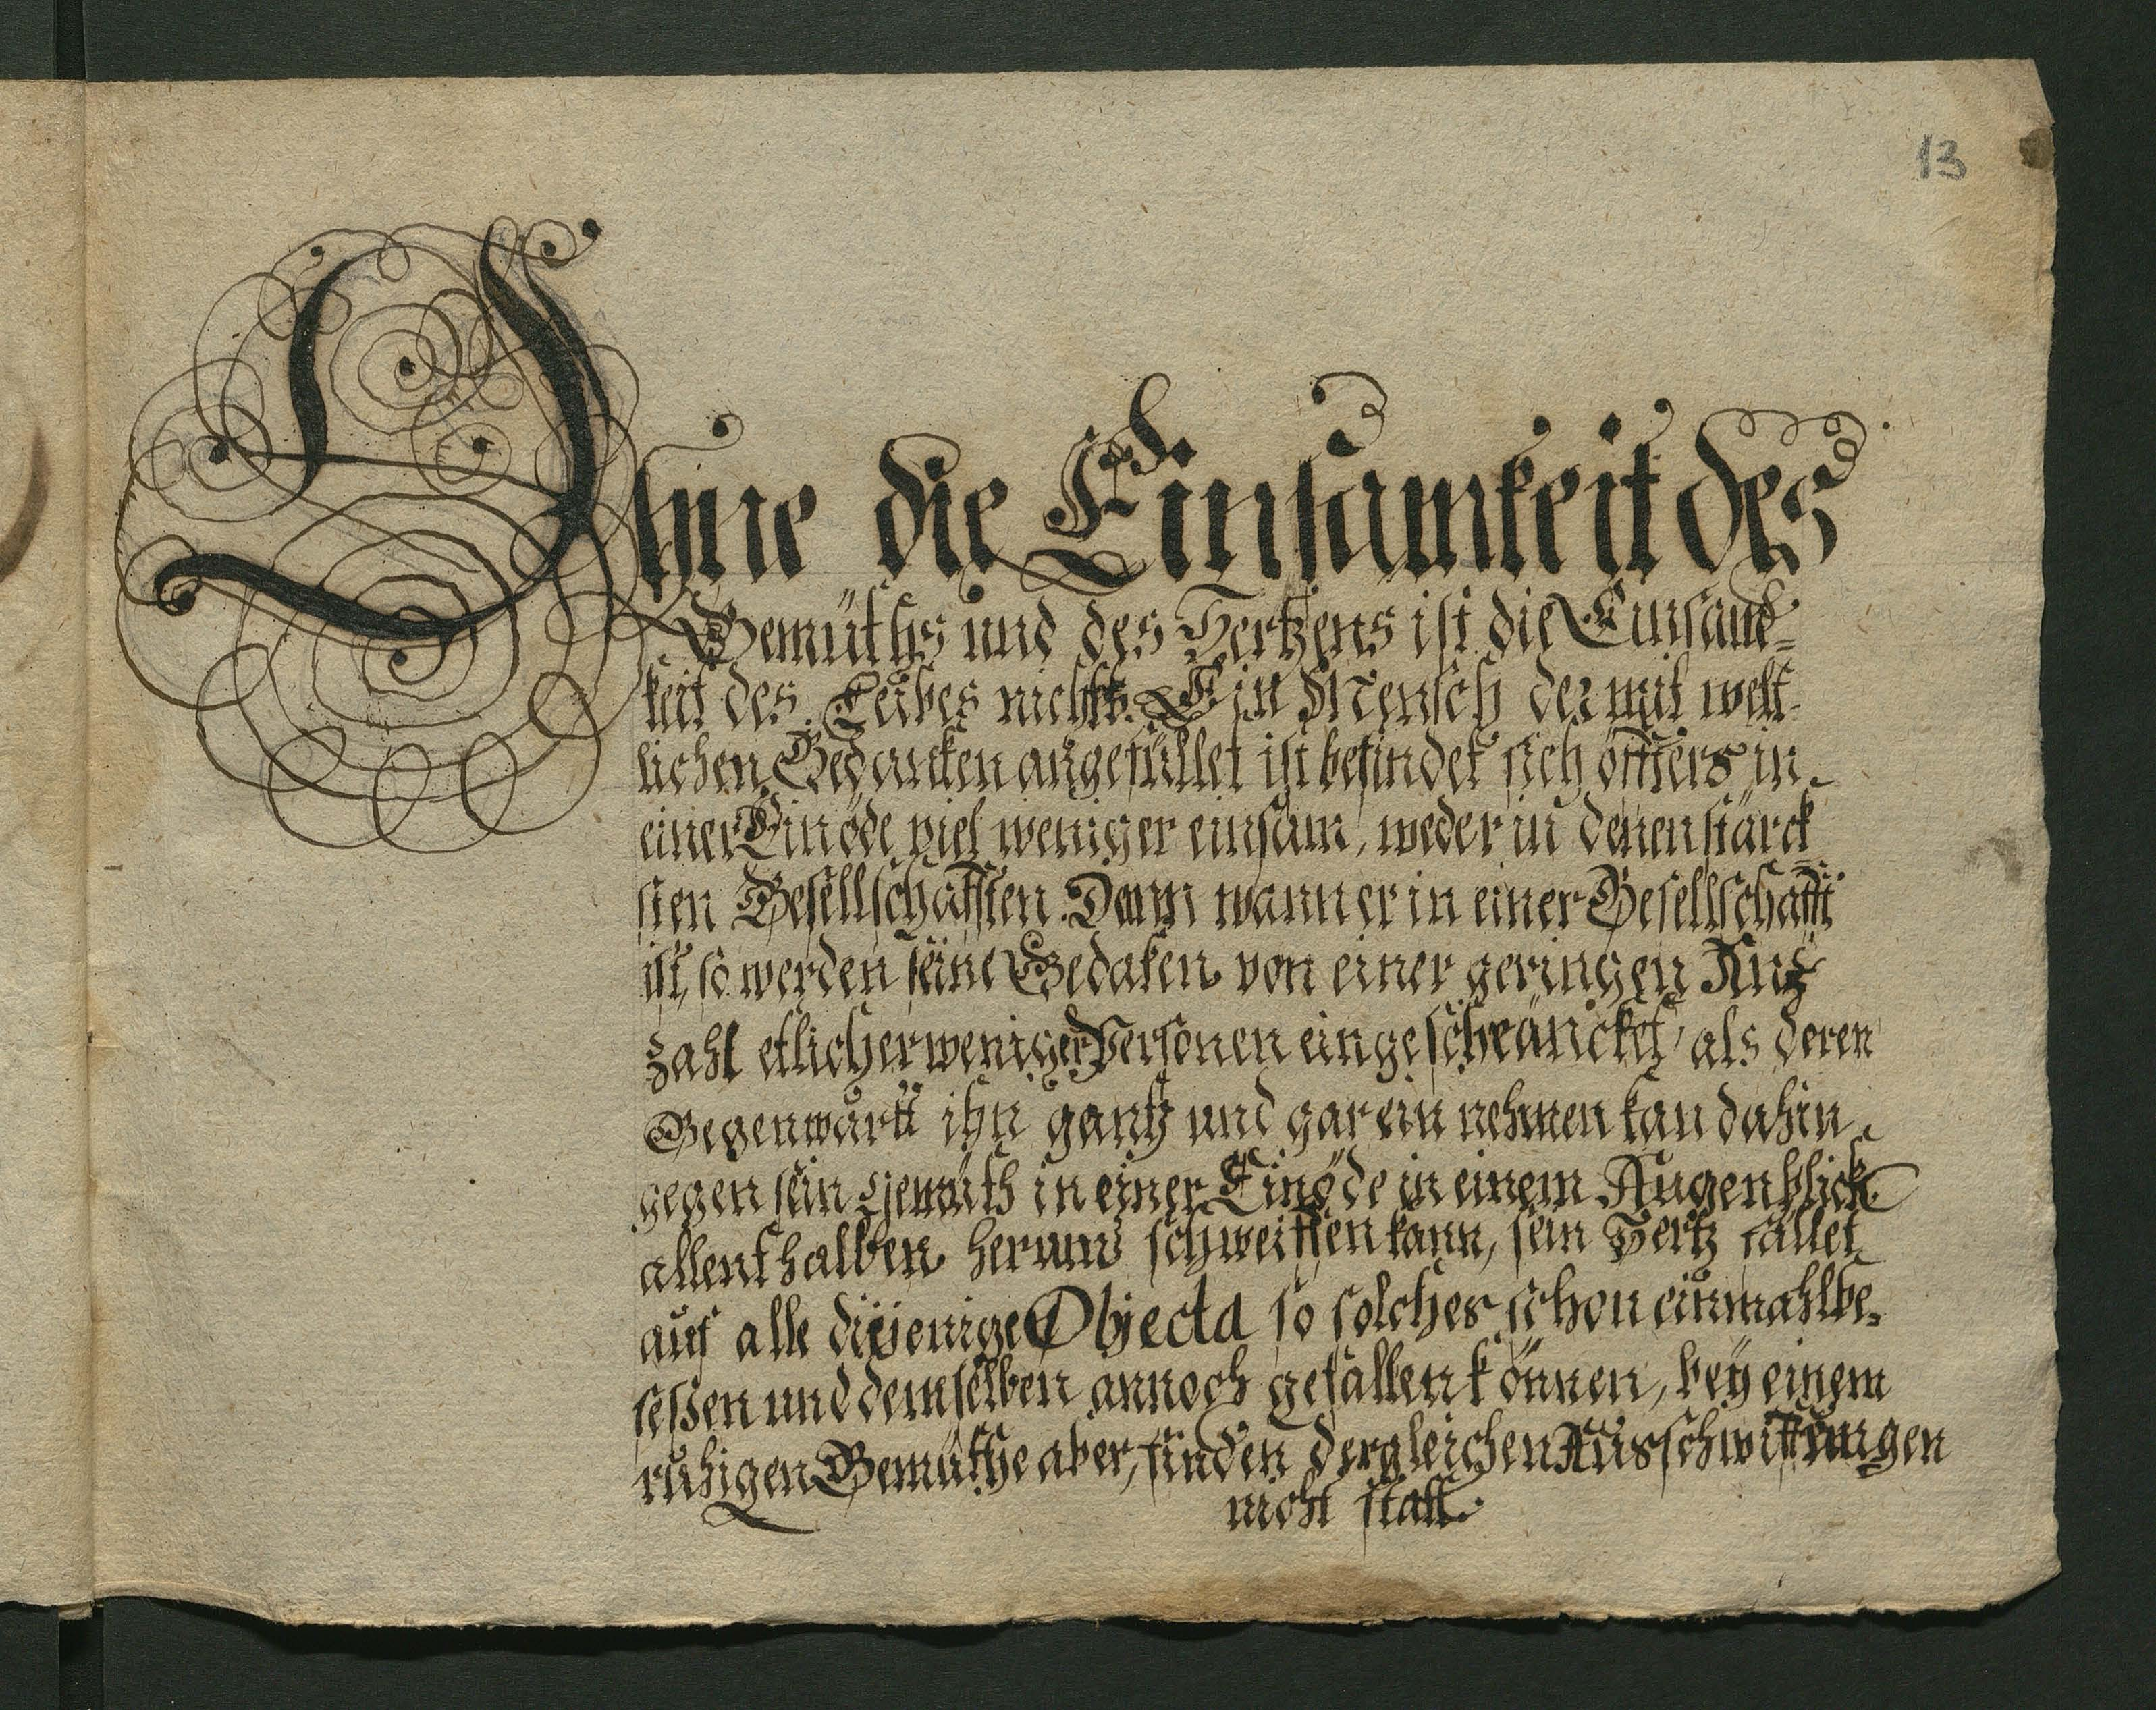 13
Ohne die Einsamkeit des
Gemüths und des Hertzens ist die Einsam-
keit des Leibes nichts. Ein Mensch der mit welt-
lichen Gedancken angefüllet ist befindet sich öffters in
einer Einöde viel weniger einsam, weder in denen stärck
sten Gesellschafften. Dann wann er in einer Gesellschafft
ist, so werden seine Gedaken von einer geringen An-
zahl etlicher weniger Personen eingeschränckt, als deren
Gegenwartt ihn gantz und gar ein nehmen kan dahin
gegen sein gemüth in einer Einöde in einem Augenblick
allenthalben herum schweiffen kann, sein Hertz fället
auf alle diejenige Objecta so solches schon einmahl be-
seßen und demselben annoch gefallen können, bey einem
ruhigen Gemüthe aber, finden dergleichen Ausschwiffungen
nicht statt.